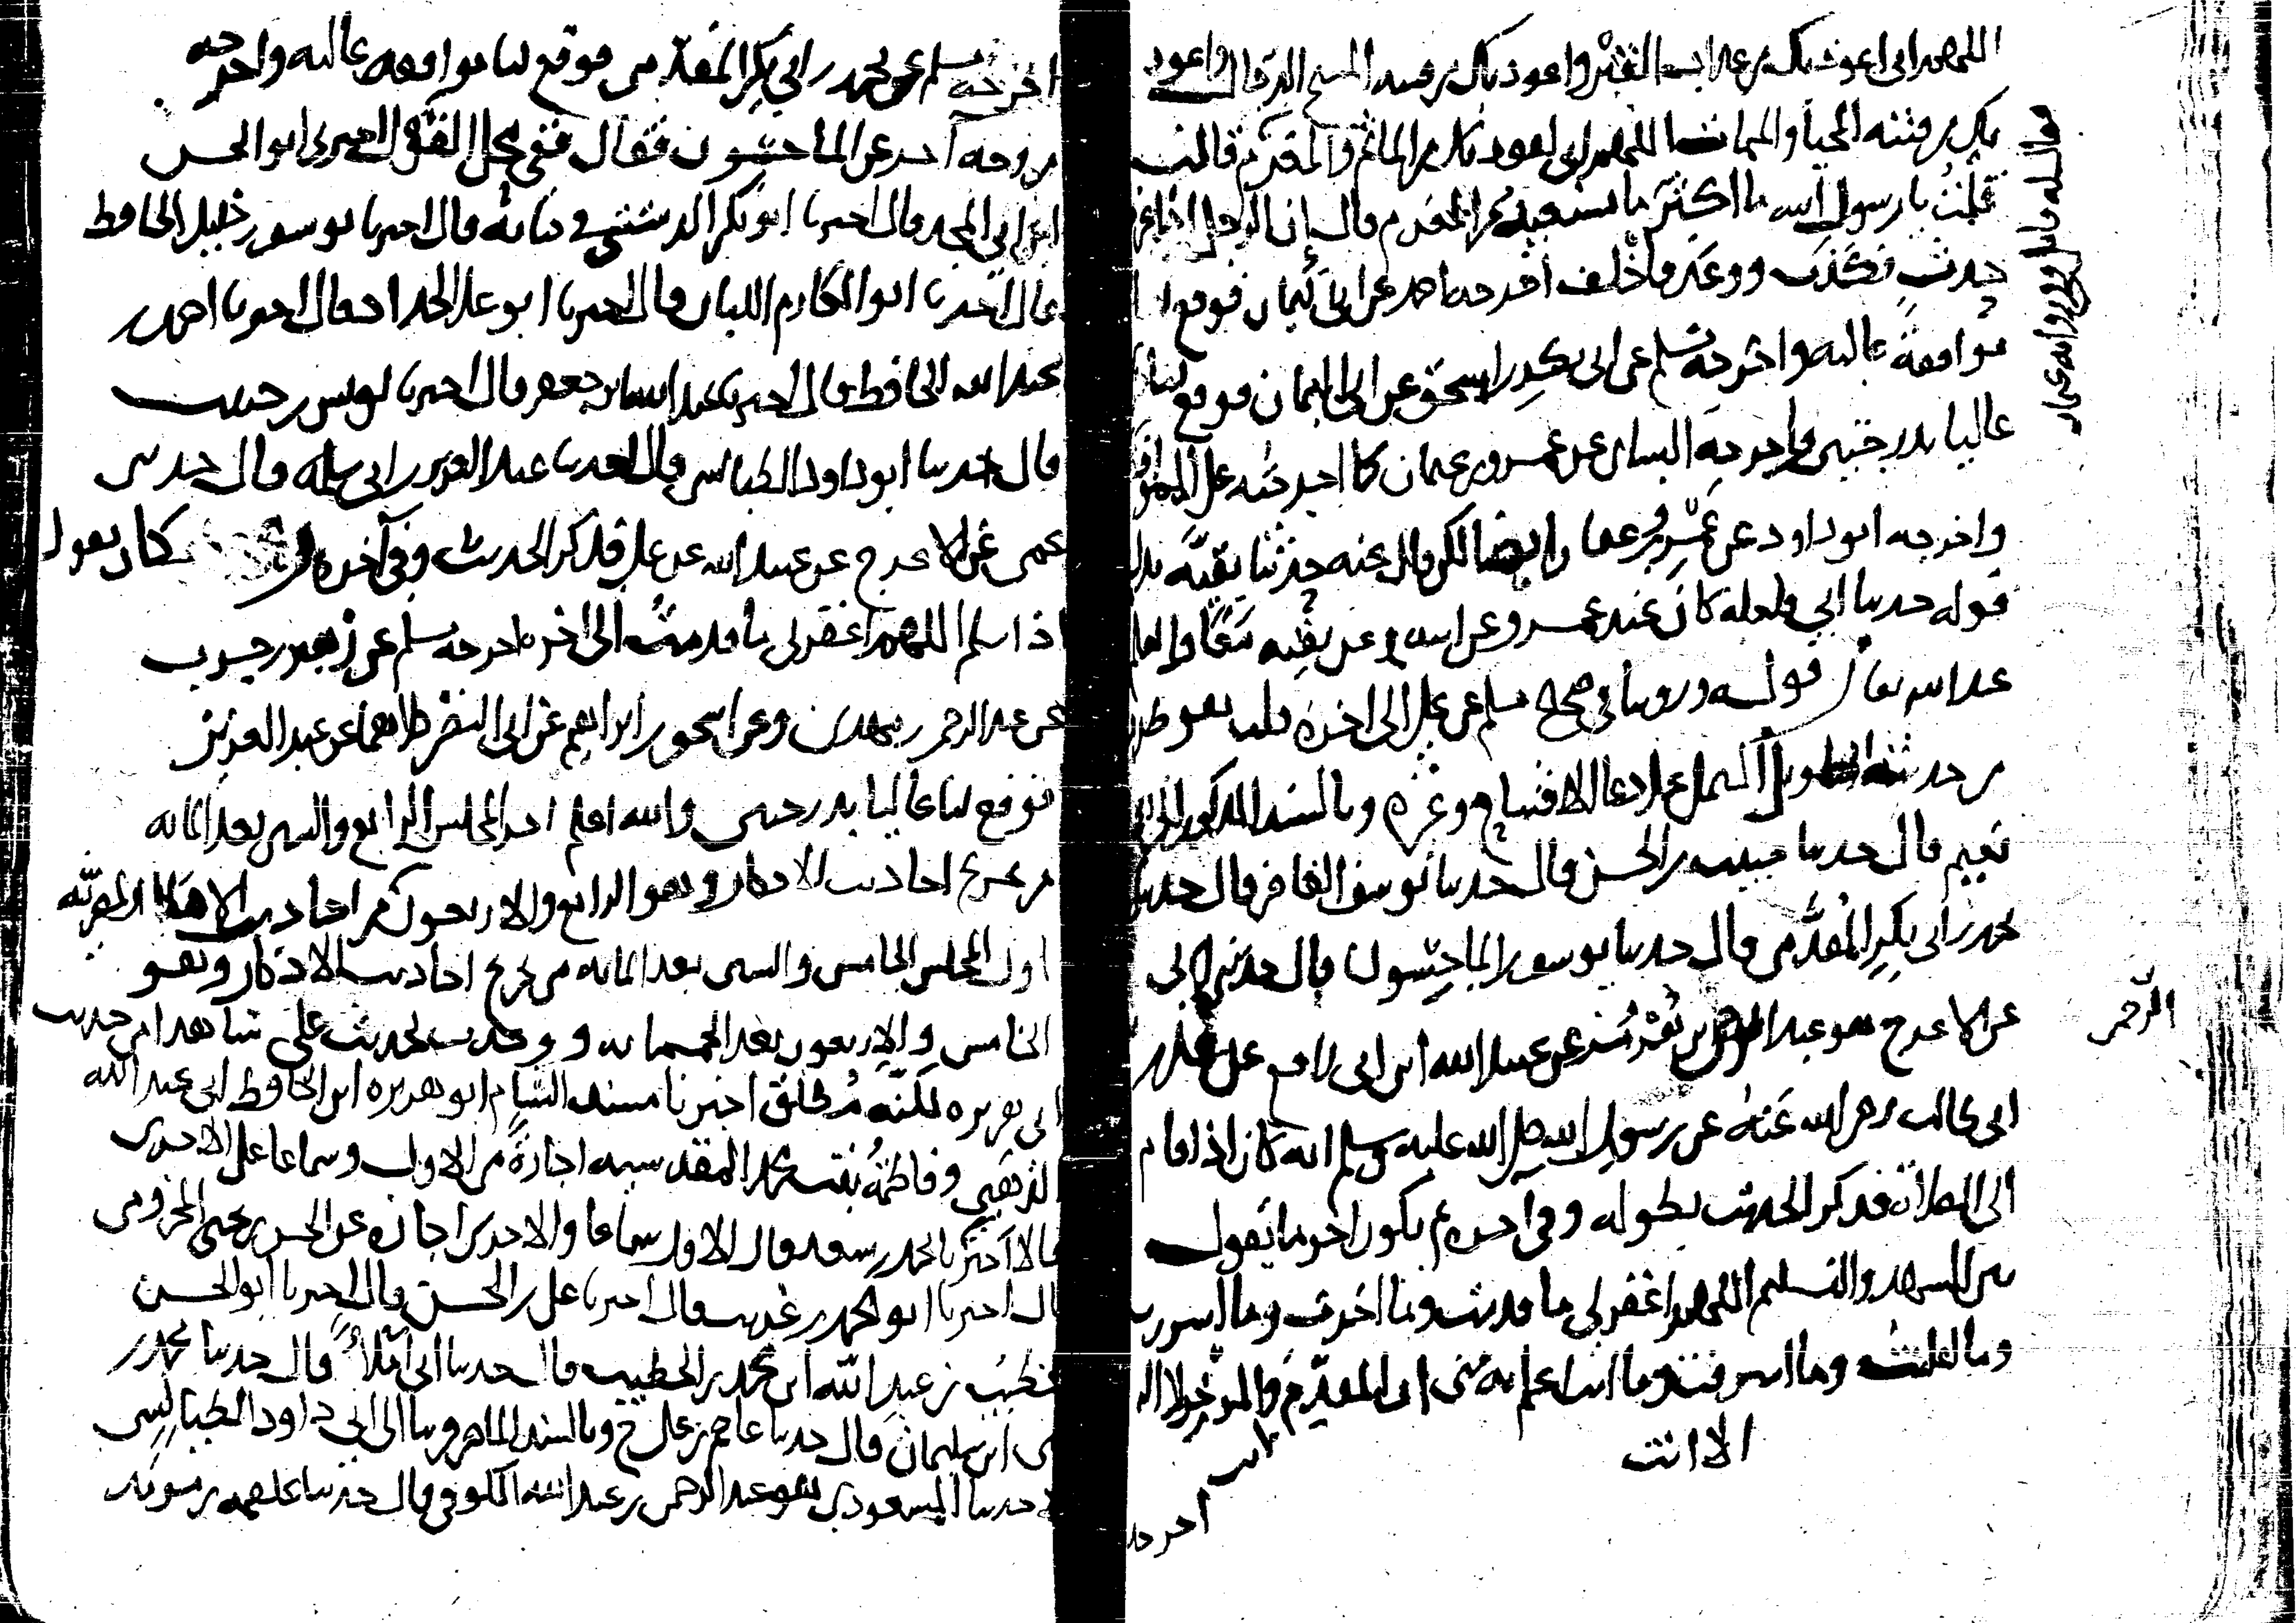 اللهم اني اعوذ بك من عذاب القبر واعوذ بك من فتنة المسيح الدجال واعوذ
بك من فتنة المحيا والممات اللهم اني اعوذ بك من الماثم والمغرم قالت
فقلت يا رسول الله ما اكثر ما تستعيذ من المغرم قال إن الرجل اذا غرم
حدث فكذب ووعد فأخلف أخرجه احمد عن ابي اليمان فوقع لنا
موافقة عالية واخرجه مسلم عن ابي بكر بن اسحق عن ابي اليمان فوقع لنا
عاليا بدرجتين واخرجه النسائي عن عمرو بن عثمان كما اخرجته على الموافقة
واخرجه ابو داود عن عمرو بن عثمان ايضا لكن قال عنه حدثنا بقية بدل
قوله حدثنا ابي ولعله كان عند عمرو عن ابيه وعن بقية معا والعلم
عند الله تعالى قوله وروينا في صحيح مسلم عن علي الى اخره قلت هو طرف
من حديثه الطويل المشتمل على دعاء الافتتاح وغيره وبالسند المذكور الى ابي
نعيم قال حدثنا حبيب بن الحسن قال حدثنا يوسف القاضي قال حدثنا
محمد بن ابي بكر المقدمي قال حدثنا يوسف الماجشون قال حدثني ابي
عن الاعرج هو عبد الرحمن بن هرمز عن عبيد الله ابن ابي رافع عن علي بن
ابي طالب رضي الله عنه عن رسول الله صلى الله عليه وسلم انه كان اذا قام
الى الصلاة فذكر الحديث بطوله وفي اخره ثم يكون اخر ما يقول
بين التشهد والتسليم اللهم اغفر لي ما قدمت وما اخرت وما اسررت
وما اعلنت وما اسرفت وما انت اعلم به مني انت المقدم والمؤخر لا اله
الا انت
اخرجه
الرحمن
اخرجه مسلم عن محمد بن ابي بكر المقدمي فوقع لنا موافقة عالية واخرجه
من وجه آخر عن الماجشون فقال اخبرني ابو الحسن
ابن ابي المجد قال اخبرنا ابو بكر الدشتي في كتابه قال اخبرنا يوسف بن خليل الحافظ
قال اخبرنا ابو المكارم اللبان قال اخبرنا ابو علي الحداد قال اخبرنا احمد بن
عبد الله الحافظ قال اخبرنا عبد الله بن جعفر قال اخبرنا يونس بن حبيب
قال حدثنا ابو داود الطيالسي قال حدثنا عبد العزيز بن ابي سلمة قال حدثني
عمي عن الاعرج عن عبيد الله عن علي فذكر الحديث وفي آخره كان يقول
اذا سلم اللهم اغفر لي ما قدمت الى اخره اخرجه مسلم عن زهير بن حرب
عن عبد الرحمن بن مهدي وعن اسحق بن ابراهيم عن ابي النضر كلاهما عن عبد العزيز
فوقع لنا عاليا بدرجتين والله اعلم اخر المجلس الرابع والستين بعد المائة
من تخريج احاديث الاذكار وهو الرابع والاربعون من احاديث الاذكار المصرية
اول المجلس الخامس والستين بعد المائة من تخريج احاديث الاذكار وهو
الخامس والاربعون بعد الخمسمائة ووجدت لحديث علي شاهدا من حديث
ابي هريرة لكنه مطلق اخبرنا مسند الشام ابو هريرة ابن الحافظ ابي عبد الله
الذهبي وفاطمة بنت محمد المقدسية اجازة من الاول وسماعا على الاخرى
قالا اخبرنا محمد بن سعد قال الاول سماعا والاخرى اجازة عن الحسن بن يحيى المخزومي
قال اخبرنا ابو محمد بن قال اخبرنا علي بن الحسن قال اخبرنا ابو الحسن
الخطيب بن عبد الله ابن محمد بن الخطيب قال حدثنا ابي املاء قال حدثنا محمد بن
ابن سليمان قال حدثنا عاصم بن علي ح وبالسند الماضي قريبا الى ابي داود الطيالسي
حدثنا المسعودي هو عبد الرحمن بن عبد الله الكوفي قال حدثنا علقمة بن مرثد